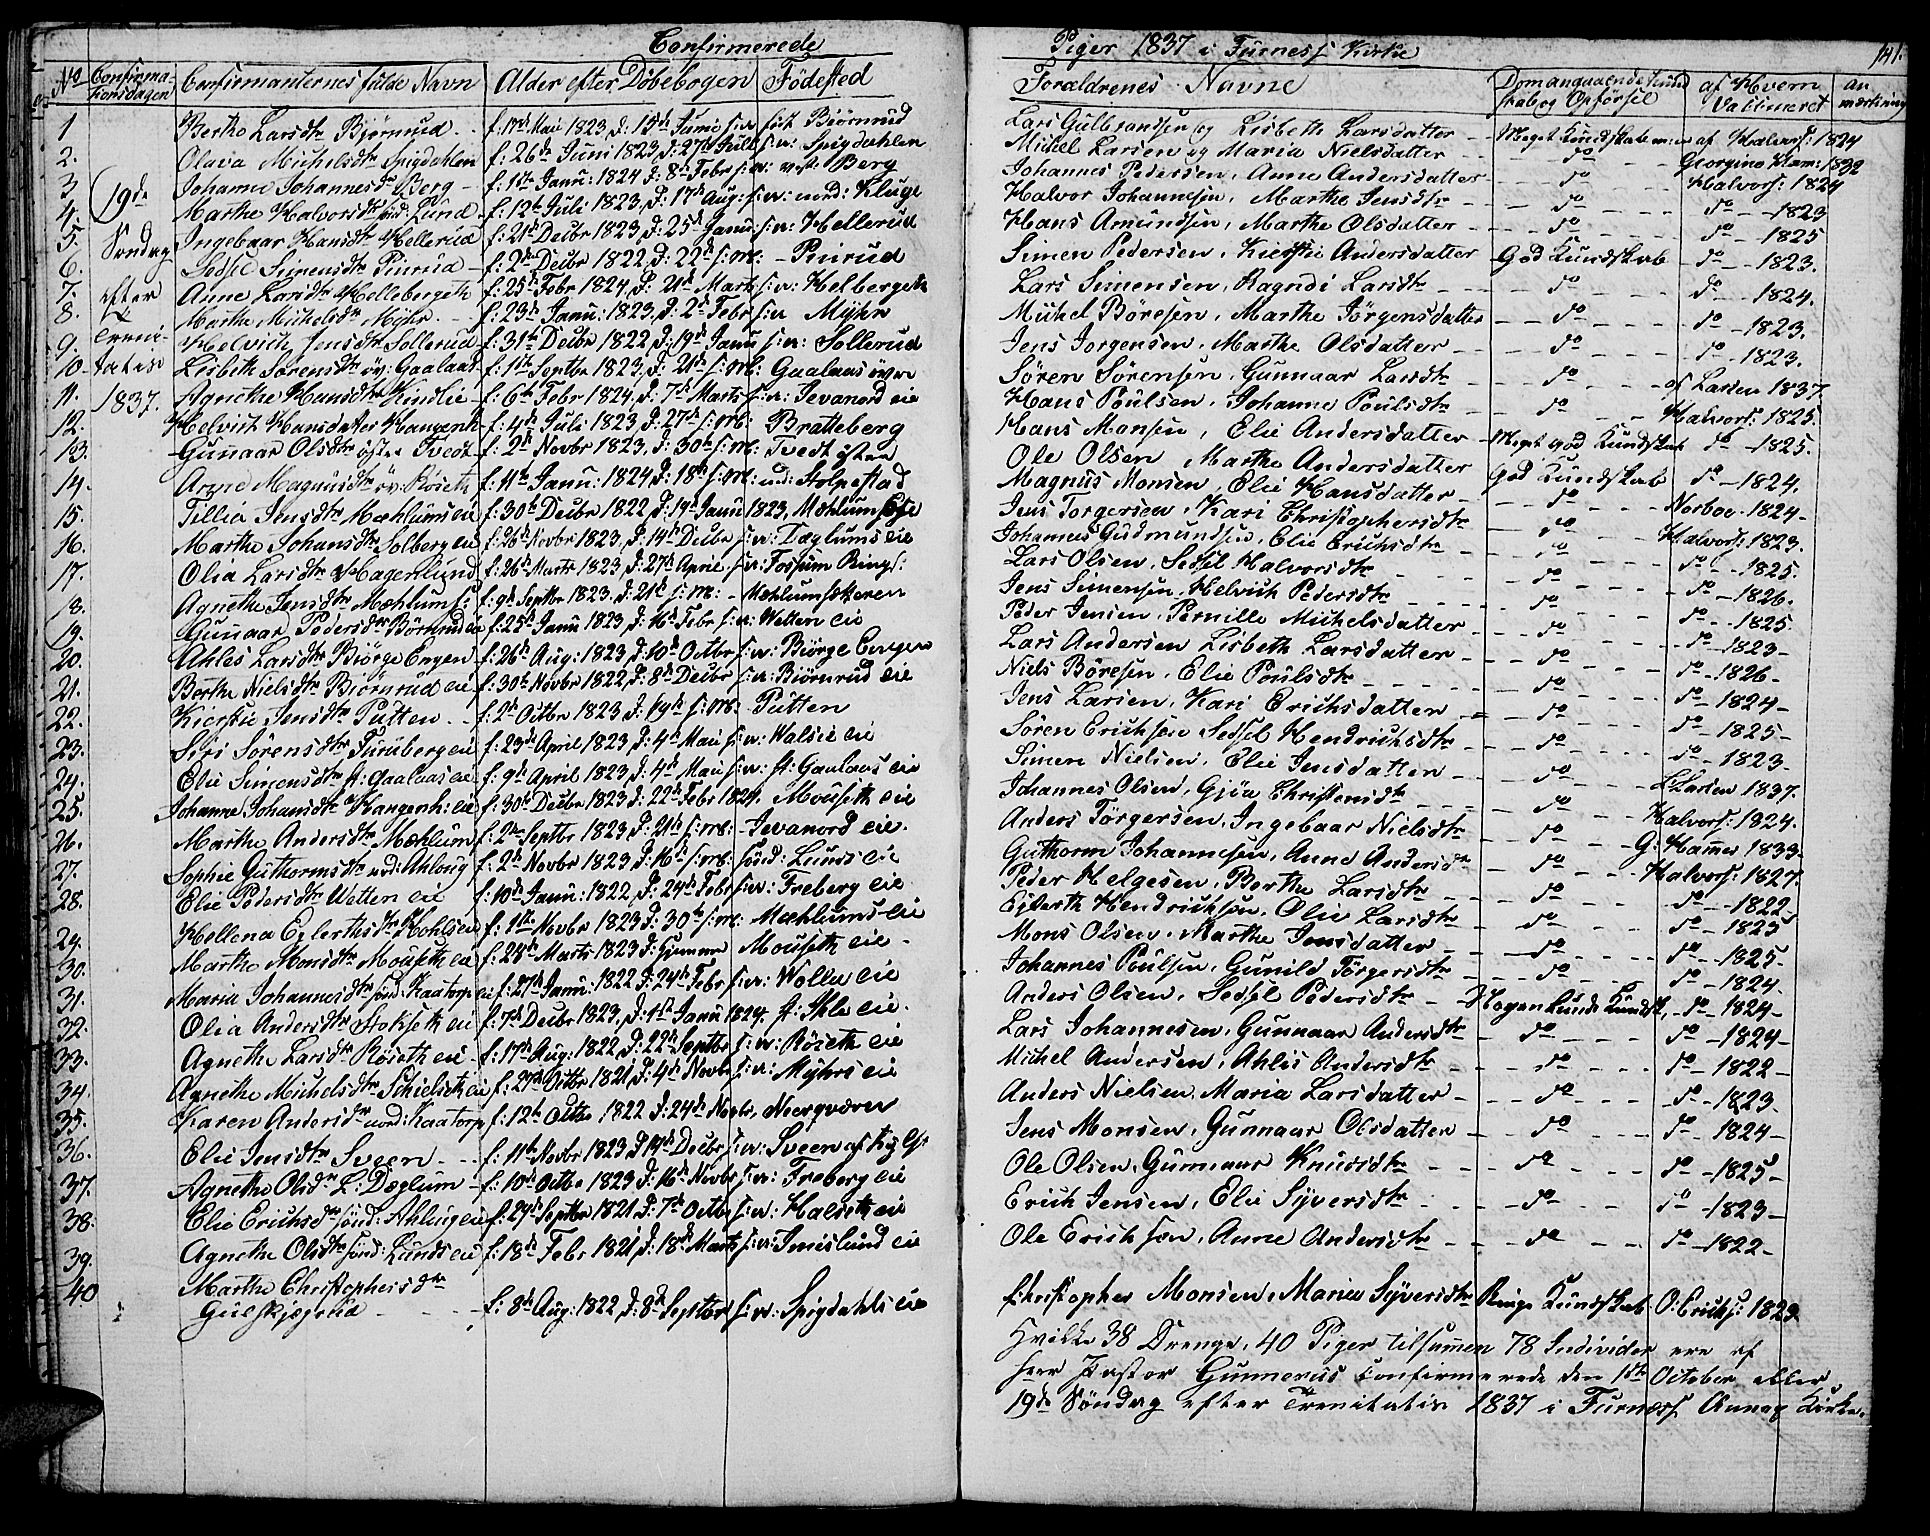 Confirmerede
Piger 1837 i Furness Kirke
141.
No Confirmationsdagen Confirmanternes fulde Navn Alder efter Döbebogen Födested
Forældrenes Navne Dom angaaende Kundskab og Opförsel af Hvem Vaccineret Anmærkning
19de Söndag efter Trenitatis 1837.
1 Berthe Larsdtr Bjørnrud f: 17de Mai 1823, d: 15de Juni s: A: öst Biörnrud
Lars Gulbrandsen og Lisbeth Larsdatter Meget Kundskab af Halvors: 1824
2. Olava Michelsdtr Spigdahlen f: 26de Juni 1823, d: 27de Juli s: A: Spigdahlen
Michel Larsen og Maria Nielsdatter do Georgine Ham: 1832
3 Johanne Johannesdtr Berg f: 1ste Janu: 1824 d: 8de Febr s: A: vest: Berg
Johannes Pedersen, Anne Andersdatter do Halvors: 1824
4. Marthe Halvorsdtr sönd: Lund f: 12te Juli 1823, d: 17de Aug: s: A: nord: Kluge
Halvor Johannesen, Marthe Jensdtr do do 1823
5. Ingebaar Hansdtr Hellerud f: 21de Decbr 1823, d: 25de Janu: s: A: Hellerud
Hans Amundsen, Marthe Olsdatter do do 1825
6. Sedsel Simensdtr Pinrud f: 2den Decbr 1822, d: 22de s: M: Pinrud
Simen Pedersen, Kierstie Andersdatter God Kundskab do 1823.
7. Anne Larsdtr Hellebergeth f: 25de Febr 1824, d: 21de Marts s: A: Helbergeth
Lars Simensen, Ragndi Larsdtr do do 1824.
8. Marthe Michelsdtr Myhr f: 23de Janu: 1823, d: 2de Febr s: A: Myhr
Michel Böresen, Marthe Jörgensdatter do do 1823.
9. Helvich Jensdtr Sollerud f: 31te Decbr 1822, d: 19de Janu s: A: Sollerud
Jens Jorgensen, Marthe Olsdatter do do 1823.
10 Lisbeth Sörensdtr öv: Gaalaas f: 1ste Septbr 1823, d: 21de s: M: Gaalaas övre
Sören Sörensen, Gunnaar Larsdtr do af Larsen 1837
11. Agnethe Hansdtr Kindlie f: 6te Febr 1824, d: 7de Marts s: A: Jevanord eie
Hans Poulsen, Johanne Poulsdtr do Halvors: 1825.
12. Helvich Hansdatter Hangenh f: 4de Juli 1823 d: 27de s: M: Bratteberg
Hans Monsen, Elie Andersdatter Meget god Kundskab do 1825.
13. Gunaar Olsdtr östre Tvedt f: 2de Novbr 1823, d: 30te s: M: Tvedt östre
Ole Olsen Marthe Andersdatter God Kundskab do 1824.
14. Anne Magnusdtr öv: Röseth f: 11te Janu: 1824 d: 18de s: M: nd: Stolpestad
Magnus Monsen, Elie Hansdatter do Norboe 1824
15. Tillia Jensdtr Mæhlums eie f: 30te Decbr 1822 d: 19de Janu 1823, Mæhlums Eie
Jens Torgersen, Kari Christopherdtr do Halvors: 1823.
16. Marthe Johansdtr Solberg eie f: 26de Novbr 1823, d: 14de Decbr s: A: Dæglums eie
Johannes Gudmundsen, Elie Erichsdtr do do 1825.
17. Olia Larsdtr Hagenlund f: 26de Marts 1823, d: 27de April s: A: Fossum Rings:
Lars Olsen, Sedsel Halvorsdtr do do 1826.
18. Agnethe Jensdtr Mæhlum f: 9de Septbr 1823. d: 21de s: M: Mæhlumsæteren
Jens Simensen, Helvich Pedersdtr do do 1825
19. Gunaar Pedersdtr Börnrud eie f: 25de Janu 1823, d: 16de Febr s: A: Wetten eie
Peder Jensen, Pernille Michelsdatter do do 1823
20. Ahles Larsdtr Biörge Engen f: 26de Aug: 1823, d: 10de Octbr s: A: Biörge Engen
Lars Andersen Lisbeth Larsdatter do do 1826
21. Berthe Nielsdtr Biörnrud eie f: 30te Novbr 1822, d: 8de Decbr s: A: Biörnrud eie
Niels Böresen, Elie Poulsdtr do do 1824
22. Kierstie Jensdtr Putten f: 2de Octbr 1823 d: 19de s: M: Putten
Jens Larsen, Kari Erichsdatter do do 1825
23. Siri Sörensdtr Furuberg eie f: 23de April 1823, d: 4de Mai s: A: Walsie eie
Sören Erichsen Sedsel Hendrichsdtr do do 1823
24. Elie Simensdtr st: Gaalaas eie f: 9de April 1823, d: 4de Mai s: A: st: Gaalaas eie
Simen Nielsen, Elie Jensdatter do L. Larsen 1837.
25. Johanne Johansdtr Hangenh: eie f: 30te Decbr 1823 d: 22de Febr 1824. Mouseth eie
Johannes Olsen, Gjöa Christensdtr do Halvors: 1824.
26. Marthe Andersdtr Mæhlum f: 2den Septbr 1823, d: 21de s: M: Jevanord eie.
Anders Törgersen, Ingebaar Nielsdtr do G: Hames 1833
27. Sophie Guthormsdtr nd: Ahlong f: 2de Novbr 1823 d: 16de s: M: sönd: Lunds eie
Guthorm Johannesen, Anne Andersdtr do Halvors: 1827.
28. Elie Pedersdtr Wetten eie f: 10de Janu: 1822, d: 24de Febr s: A: Freberg eie
Peder Helgesen, Berthe Larsdtr do do 1822
Hellena Eilerthsdtr Kohlseie f: 1ste Novbr 1823 d: 30te s: M: Mæhlums eie
Ejlerth Hendrichsen, Olie Larsdtr do do 1825
29. Marthe Monsdtr Mouseth eie f: 28de Marts 1823 d: Hjemme Mouseth eie
Mons Olsen, Marthe Jensdatter do do 1825
30. Maria Johannesdtr sönd: Kaatorp eie f: 27de Janu: 1822 d: 24de Febr s: A: Wolle eie
Johannes Poulsen, Gunild Törgersdtr do do 1824
31. Olia Andersdtr Stokseth eie f: 7de Decbr 1823, d: 1ste Janu 1824. st: Ihle eie.
Anders Olsen, Sedsel Pedersdtr Nogenlunde Kundsk. do 1824
32. Agnethe Larsdtr Röseth eie f: 17de Aug: 1822, d: 22de Septbr s: A: Röseth eie
Lars Johannesen, Gunnaar Andersdtr do do 1824
33. Agnethe Michelsdtr Schielseth eie f: 27de Octbr 1821, d: 4de Novbr s: A: Myhrs eie
Michel Andersen, Ahlis Andersdtr do do 1822
34. Karen Andersdtr nord: Kaatorp f: 12te Octbr 1822 d: 24de Novbr, Neerqværn
Anders Nielsen, Maria Larsdatter do do 1823
35. Elie Jensdtr Sveen f: 11te Novbr 1823 d: 14de Decbr s: A: Sveen af
Jens Monsen, Gunnaar Olsdatter do do 1824
36. Agnethe Olsdtr L: Dæglum f: 10de Octbr 1823 d: 16de Novbr s: A: Freberg eie
Ole Olsen, Gunnaar Knudsdtr do do 1825
37. Elie Erichsdtr sönd: Ahlung eie f: 24de Septbr 1821 d: 7de Octbr s: A: Halseth eie
Erich Jensen, Elie Syversdtr do do 1823
38. Agnethe Olsdtr sönd: Lunds eie f: 18de Febr 1821, d: 18de Marts s: A: Imislund eie
Ole Erichsen, Anne Andersdtr do do 1822
39.
40 Marthe Christophersdtr
Gulskjegerud f: 8de Aug: 1822, d: 8de Septbr s: A: Spigdahls eie
Christopher Monsen, Maria Syversdtr Ringe Kundskab O: Erichs: 1823.
Hvilke 38 Drenge, 40 Piger tilsamen 78 Individer ere af
Herr Pastor Gunnerus Confirmerede den 1ste October eller
19de Söndag efter Trenitatis 1837 i Furness Annex Kirke.